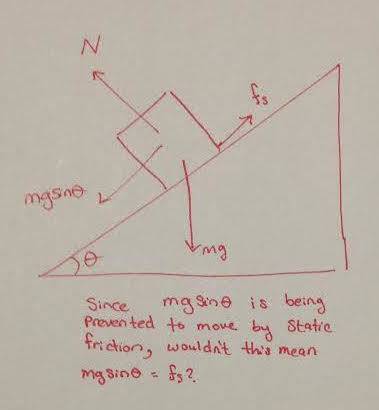 N
fs
mgsinθ
mg
θ
Since mgsinθ is being
prevented to move by static
friction, wouldn't this mean
mgsinθ = fs?